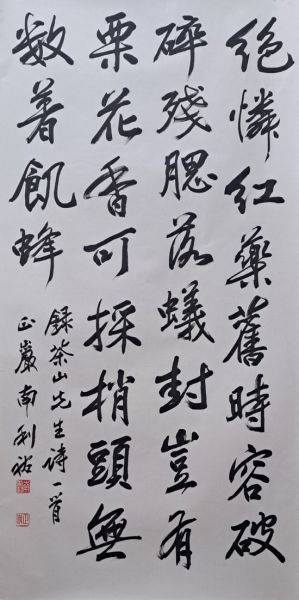 絶憐紅藥舊時容破
碎殘腮落蟻封豈有
栗花香可採梢頭無
數着飢蜂
錄茶山先生詩一首
正巖南利祐